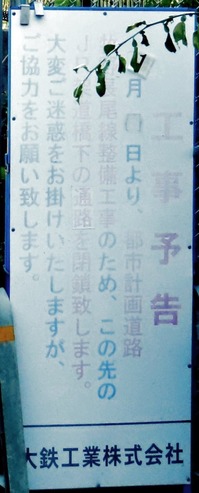 工事予告
月 日より、都市計画道路
尾線整備工事のため、この先の
道橋下の通路を閉鎖致します。
大変ご迷惑をお掛けいたしますが、
ご協力をお願い致します。
大鉄工業株式会社